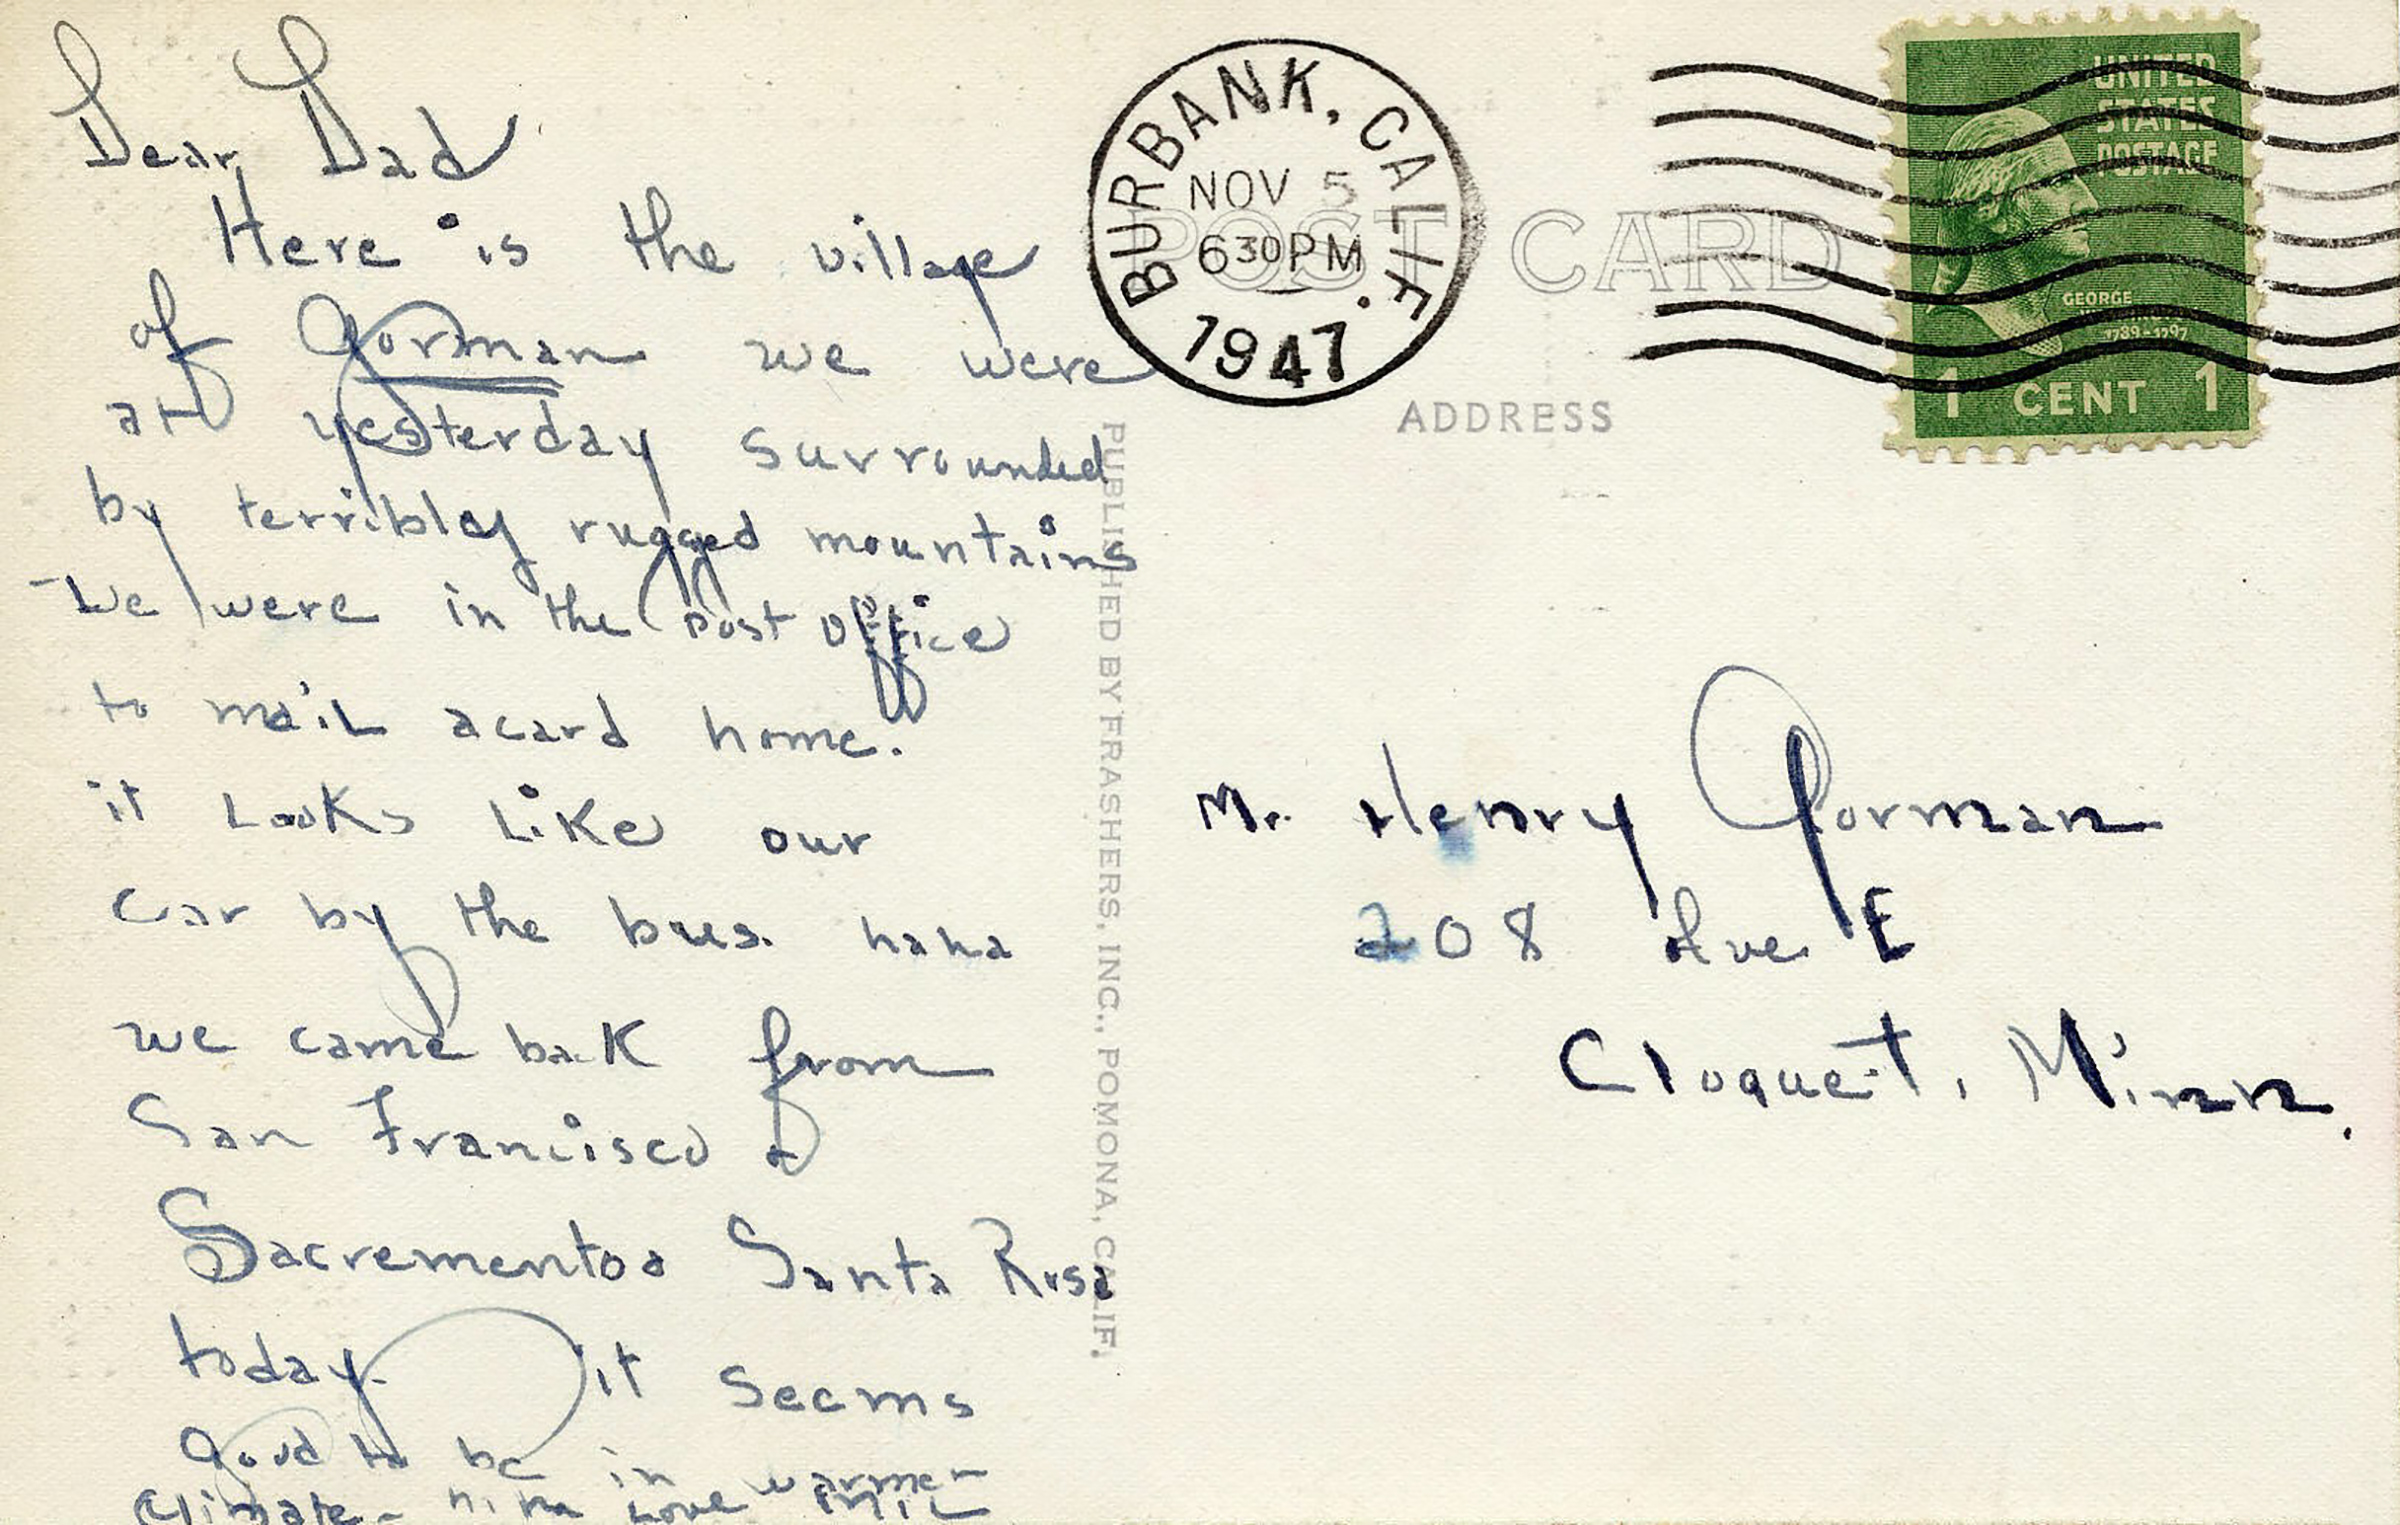 Dear Dad
Here is the village
of Gorman we were
at yesterday surrounded
by terribley rugged mountains
We were in the post office
to mail a card home.
it Looks Like our
car by the bus. haha
we came bak from
San Francisco &
Sacrementoo Santa Rosa
today. it seems
Good to be in warmer
Climate - Love
BURBANK, CALIF.
NOV 5
6 30 PM
1947
POST CARD
ADDRESS
UNITED
STATES
POSTAGE
GEORGE
WASHINGTON
1789-1797
1 CENT 1
PUBLISHED BY FRASHERS, INC., POMONA, CALIF.
Mr. Henry Gorman
208 Ave E
Cloquet, Minn.